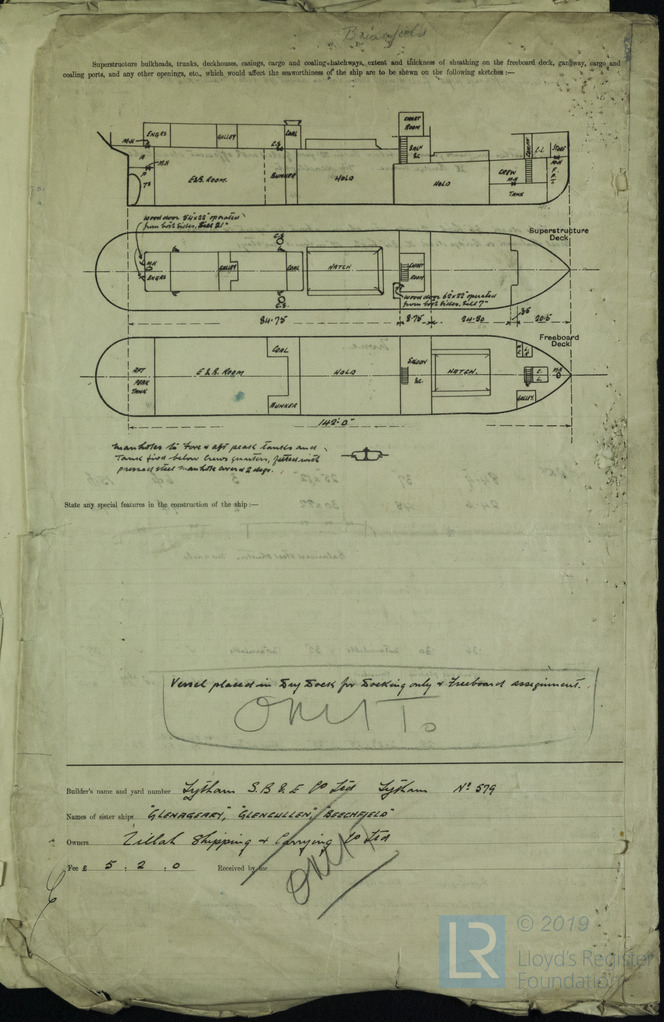 Superstructure bulkheads, trunks, deckhouses, casings, cargo and coaling hatchways, extent and thickness of sheathing on the freeboard deck, gangway, cargo and
coaling ports, and any other openings, etc., which would affect the seaworthiness of the ship are to be shewn on the following sketches:—
CHART
ROOM
ENGRS
GALLEY
COAL
M.H
E & B. ROOM.
BUNKER
HOLD
HOLD
CREW
M.H
TANK
STORE
Wood door 54x22" operated
from both sides, Sill 21"
Superstructure
Deck
M.H
ENGRS
GALLEY
COAL
HATCH
CHART
ROOM
Wood door 62x22" operated
from both sides, Sill 7"
84.75
8.75
24.50
3.5
20.5
Freeboard
Deck
AFT
PEAK
TANK
E & B. ROOM
COAL
BUNKER
HOLD
SALOON
&c.
HATCH.
GALLEY
142'-0"
Manholes to Fore & aft peak tanks and
Tank fwd below Crews quarters, fitted with
pressed steel manhole covers & 2 dogs.
State any special features in the construction of the ship:—
Vessel placed in Dry Dock for Docking only & Freeboard assignment.
OMIT
Builder's name and yard number Lytham S.B & E Co Ltd Lytham No 579
Names of sister ships "GLENAGEARY", "GLENCULLEN", "BEECHFIELD"
Owners Zillah Shipping & Carrying Co Ltd
Fee £ 5 : 2 : 0 Received by me
OMIT
© 2019
LR
Lloyd's Register
Foundation